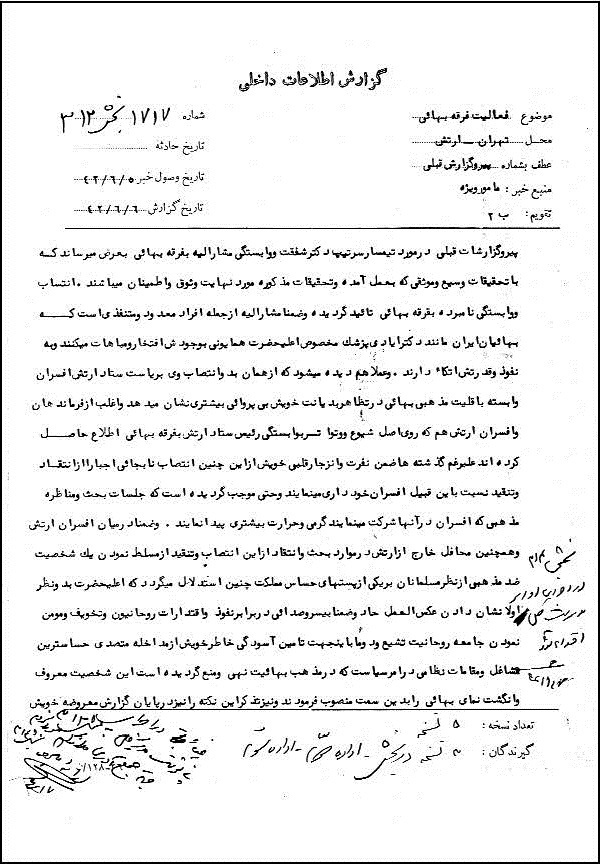 گزارش اطلاعات داخلی
موضوع فعالیت فرقه بهائی
محل تهران ـ ارتش
عطف بشماره پیروگزارش قبلی
منبع خبر: مامور ویژه
تقویم: ب ۲
شماره ۱۷۱۷ بخش ۳۱۲
تاریخ حادثه
تاریخ وصول خبر ۴۲/۶/۵
تاریخ گزارش ۴۲/۶/۶
پیروگزارشات قبلی درمورد تیمسار سرتیپ دکترشفقت ووابستگی مشارالیه بفرقه بهائی بعرض میرساند که
با تحقیقات وسیع وموثقی که بعمل آمده وتحقیقات مذکوره مورد نهایت وثوق واطمینان میباشند . انتساب
ووابستگی نامبرده بفرقه بهائی تائید گردیده وضمنا مشارالیه ازجمله افراد معدود ومتنفذی است که
بهائیان ایران مانند دکترایادی پزشک مخصوص اعلیحضرت همایونی بوجودش افتخارومباهات میکنند وبه
نفوذ وقدرتش اتکاء دارند . وعملاهم دیده میشود که ازهمان بدو انتصاب وی بریاست ستاد ارتش افسران
وابسته باقلیت مذهبی بهائی درتظاهربدیانت خویش بی پروائی بیشتری نشان میدهد واغلب ازفرماندهان
وافسران ارتش هم که روی اصل شیوع وتواتر بوابستگی رئیس ستاد ارتش بفرقه بهائی اطلاع حاصل
کرده اند علیرغم گذشته ها ضمن نفرت وانزجارقلبی خویش ازاین چنین انتصاب نابجائی اجبارا ازانتقاد
وتنقید نسبت باین قبیل افسران خود داری مینمایند وحتی موجب گردیده است که جلسات بحث ومناظره
مذهبی که افسران درآنها شرکت مینمایند گرمی وحرارت بیشتری پیدا نمایند . وضمنا درمیان افسران ارتش
وهمچنین محافل خارج ازارتش درموارد بحث وانتقاد ازاین انتصاب وتنقید ازمسلط نمودن یک شخصیت
ضد مذهبی ازنظرمسلمانان بریکی ازپستهای حساس مملکت چنین استدلال میگردد که اعلیحضرت بدونظر
اولا نشان دادن عکس العمل حاد وضمنا بیسروصدائی دربرابرنفوذ واقتدارات روحانیون وتخویف ومومن
نمودن جامعه روحانیت تشیع ودوما باینجهت تامین آسودگی خاطرخویش ازمداخله متصدی حساسترین
مشاغل ومقامات نظامی درامرسیاست که درمذهب بهائیت نهی ومنع گردیده است این شخصیت معروف
وانگشت نمای بهائی رابدین سمت منصوب فرموده اند ونیزتذکراین نکته رانیزدرپایان گزارش معروضه خویش
تعداد نسخه : ۵ نسخه
گیرندگان : ۳ نسخه در بخش ـ اداره ـ اداره سوم